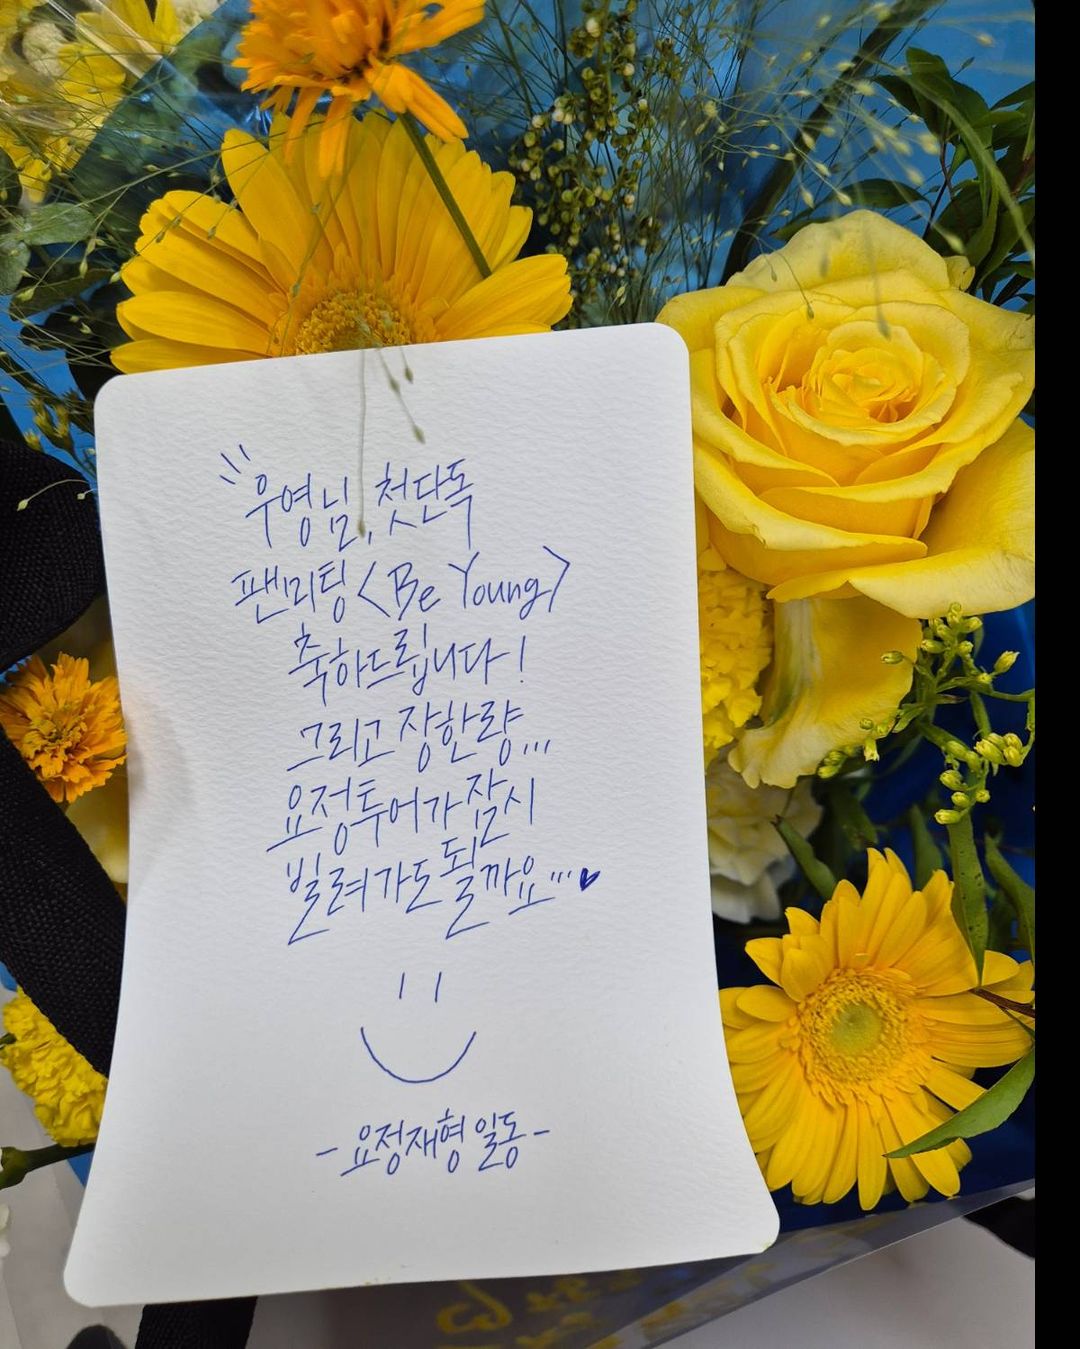 우영님, 첫 단독
팬미팅 <Be Young>
축하드립니다!
그리고 장한량...
요정투어가 잠시
빌려가도 될까요...♥
- 요정재형 일동 -